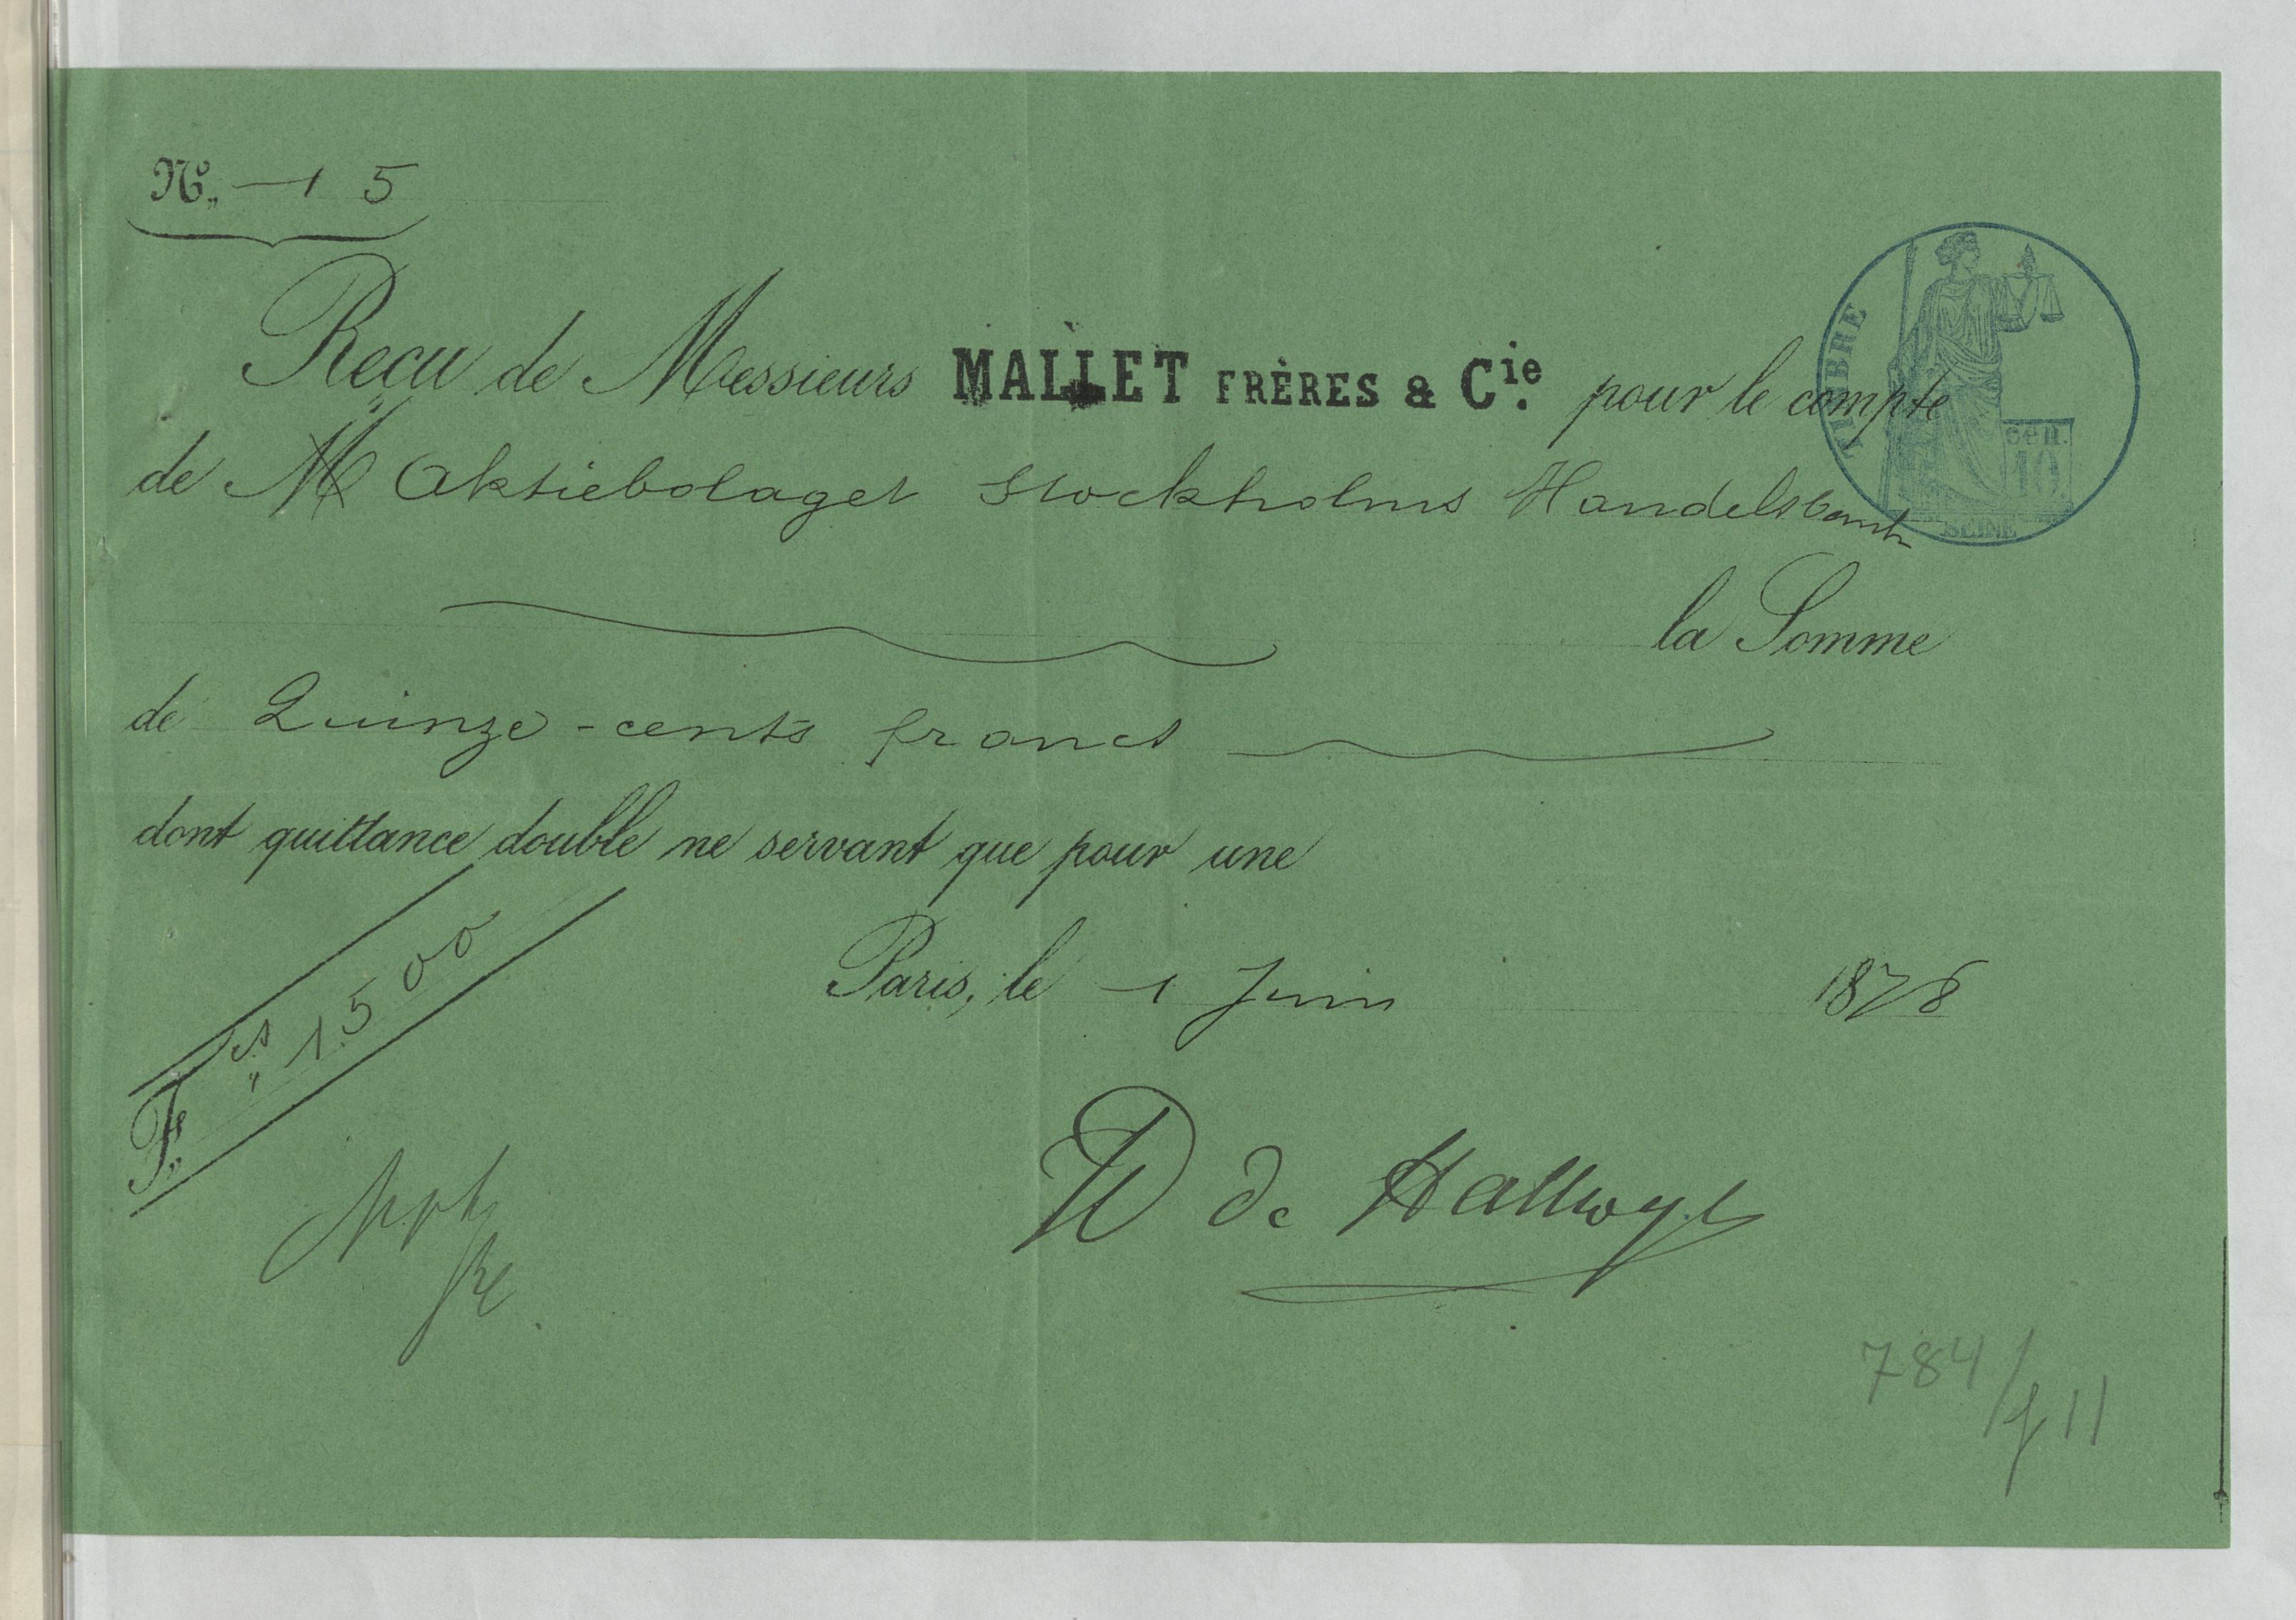 No. 15
TIMBRE
Reçu de Messieurs MALLET FRÈRES & Cie. pour le compte
de M Aktiebolaget Stockholms Handelsbank
cen.
10
SEINE
la Somme
de Quinze-cents francs
dont quittance double ne servant que pour une
Paris, le 1 Juin 1878
F. cs 1500
W de Hallwyl
784/f 11